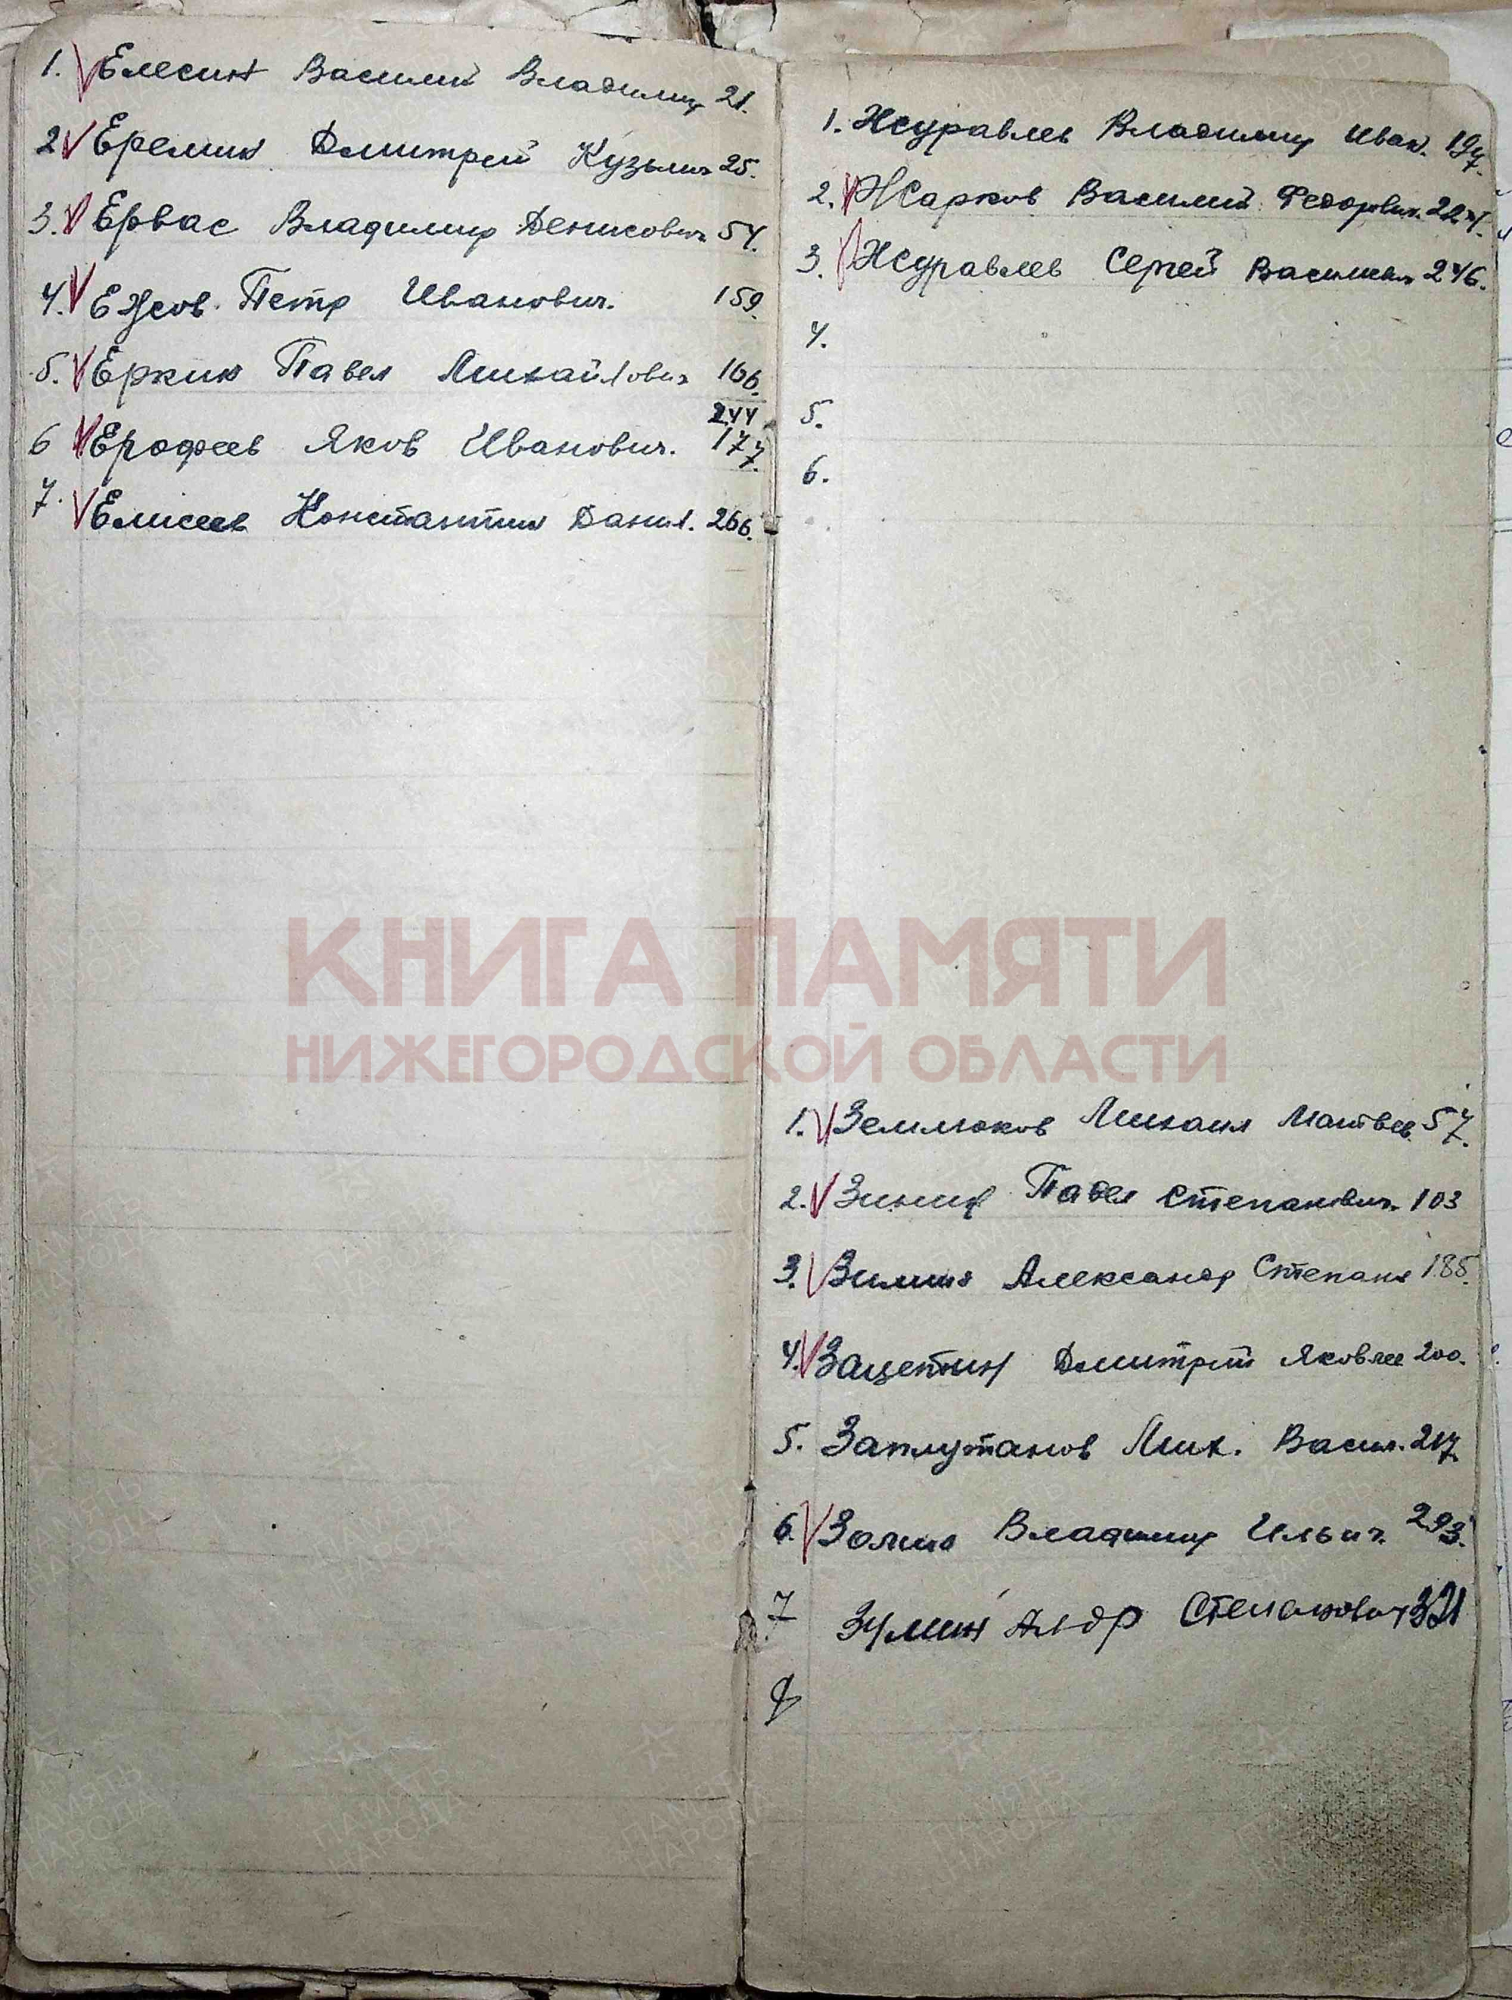 1. Елесин Василий Владимир 21.
2. Еремин Дмитрий Кузьмич 25.
3. Ервас Владимир Денисович 54.
4. Ежов Петр Иванович. 159.
5. Еркин Павел Михайлович 166.
244
6 Ерофеев Яков Иванович. 177.
7. Елисеев Константин Данил. 266.
1. Журавлев Владимир Иван. 197.
2. Жарков Василий Федорович. 224.
3. Журавлев Сергей Васильев 246.
4.
5.
6.
КНИГА ПАМЯТИ
НИЖЕГОРОДСКОЙ ОБЛАСТИ
1. Землюков Михаил Матвеев. 57.
2. Зинин Павел Степанович. 103
3. Зимин Александр Степан 185.
4. Зацепин Дмитрий Яковлев 200.
5. Заплутанов Мих. Васил. 217.
6. Владимир Ильич. 293.
7 Алдр Степанович 321
8
ПАМЯТЬ НАРОДА